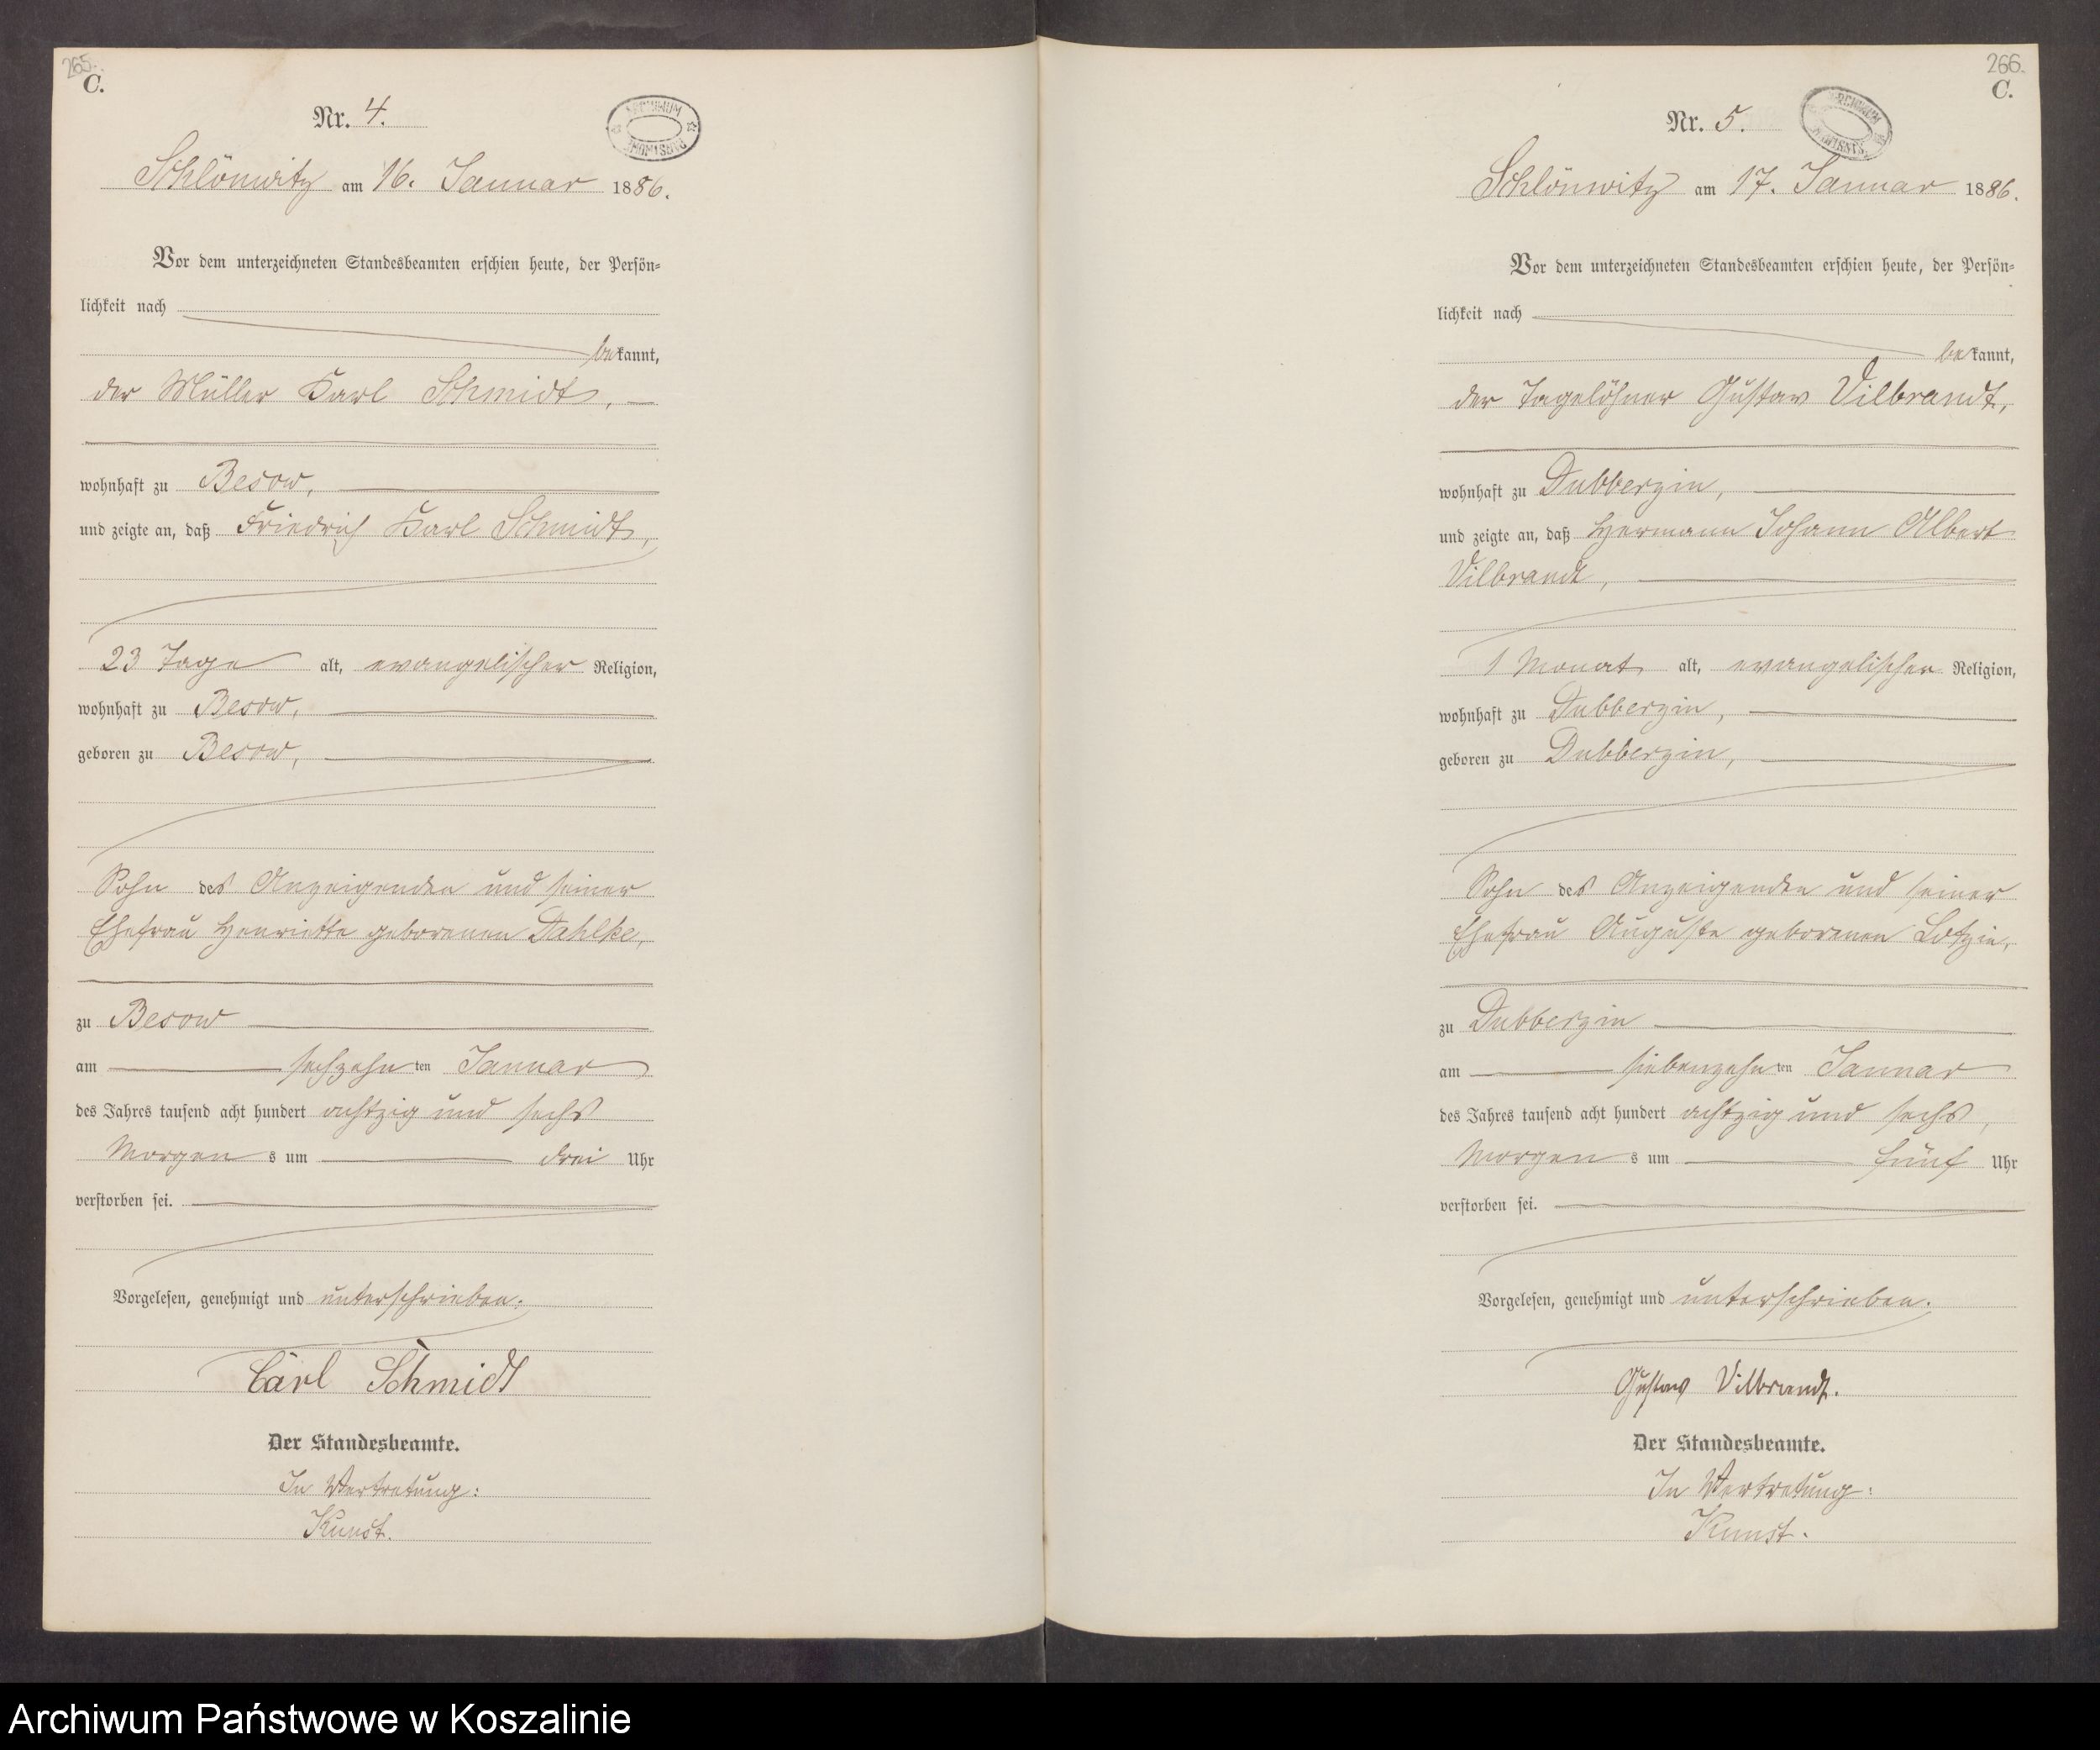 265.
C.
Nr. 4.
ARCHIWUM PAŃSTWOWE
Schlönwitz am 16. Januar 1886.
Vor dem unterzeichneten Standesbeamten erschien heute, der Persön-
lichkeit nach
bekannt,
der Müller Karl Schmidt,
wohnhaft zu Besow,
und zeigte an, daß Friedrich Karl Schmidt,
23 Tage alt, evangelischer Religion,
wohnhaft zu Besow,
geboren zu Besow,
Sohn des Anzeigenden und seiner
Ehefrau Henriette geborenen Dahlke,
zu Besow
am sechzehnten Januar
des Jahres tausend acht hundert achtzig und sechs
Morgens um drei Uhr
verstorben sei.
Vorgelesen, genehmigt und unterschrieben.
Carl Schmidt
Der Standesbeamte.
In Vertretung:
Kunst.
266.
C.
Nr. 5.
ARCHIWUM
Schlönwitz am 17. Januar 1886.
Vor dem unterzeichneten Standesbeamten erschien heute, der Persön-
lichkeit nach
bekannt,
der Tagelöhner Gustav Vilbrandt,
wohnhaft zu Dubberzin,
und zeigte an, daß Hermann Johann Albert
Vilbrandt,
1 Monat alt, evangelischer Religion,
wohnhaft zu Dubberzin,
geboren zu Dubberzin,
Sohn des Anzeigenden und seiner
Ehefrau Auguste geborenen Lotzin,
zu Dubberzin
am siebenzehnten Januar
des Jahres tausend acht hundert achtzig und sechs,
Morgens um fünf Uhr
verstorben sei.
Vorgelesen, genehmigt und unterschrieben.
Gustav Vilbrandt.
Der Standesbeamte.
In Vertretung:
Kunst.
Archiwum Państwowe w Koszalinie